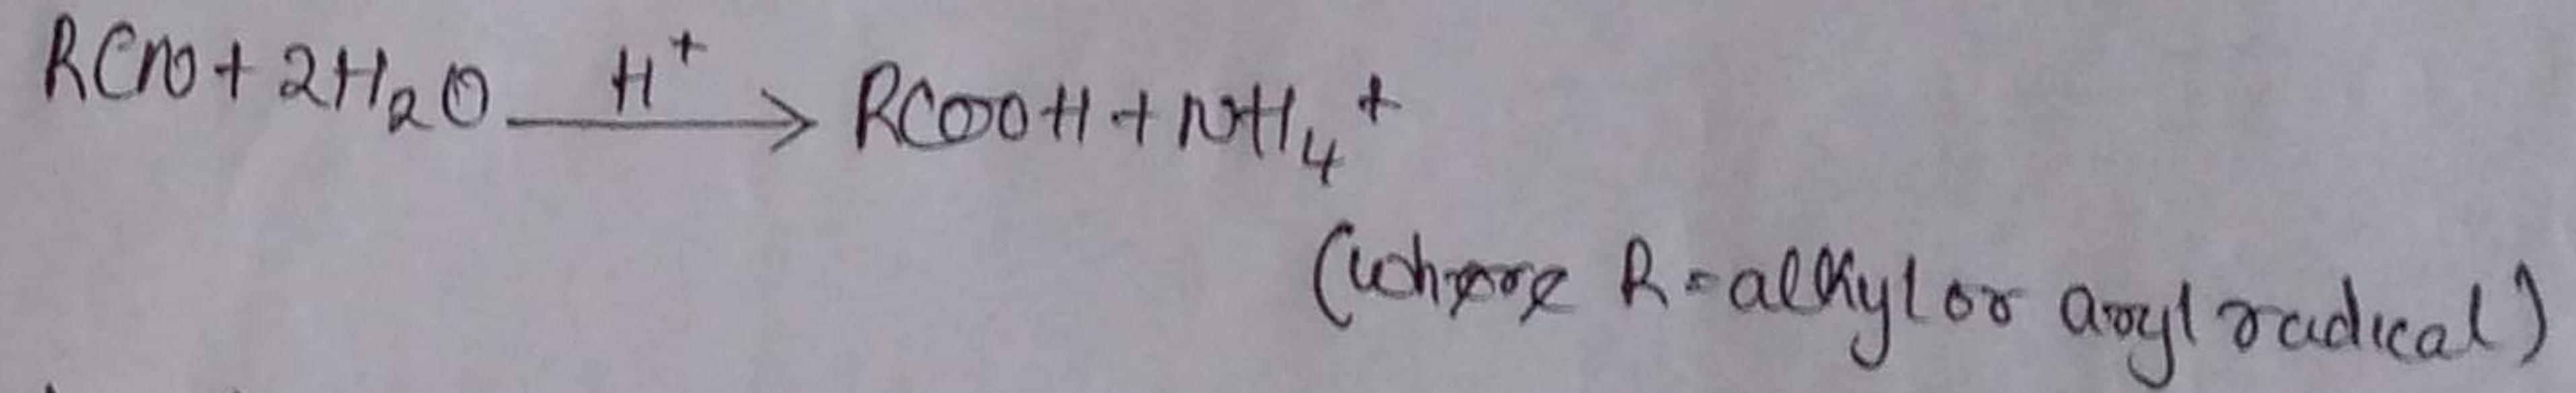 RCN + 2H₂O —H⁺→ RCOOH + NH₄⁺
(where R = alkyl or aryl radical)